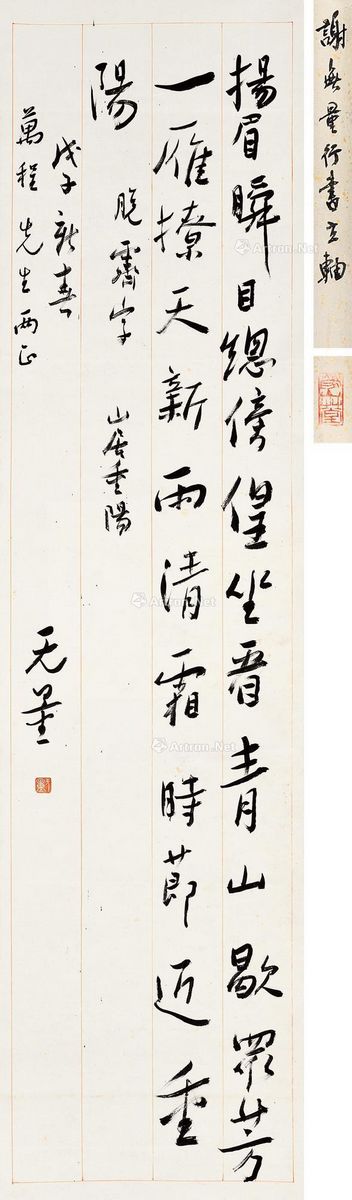 揚眉瞬目總傍偟坐看青山歇眾芳
一雁撩天新雨清霜時節近重
陽 脫霽字 山居重陽
戊子新春
萬程先生兩正
无量
謝無量行書立軸
Artron.Net
Artron.Net
Artron.Net
Artron.Net